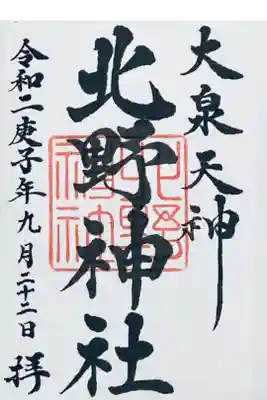 大泉天神
北野神社
北野神社
令和二庚子年九月二十二日 拝